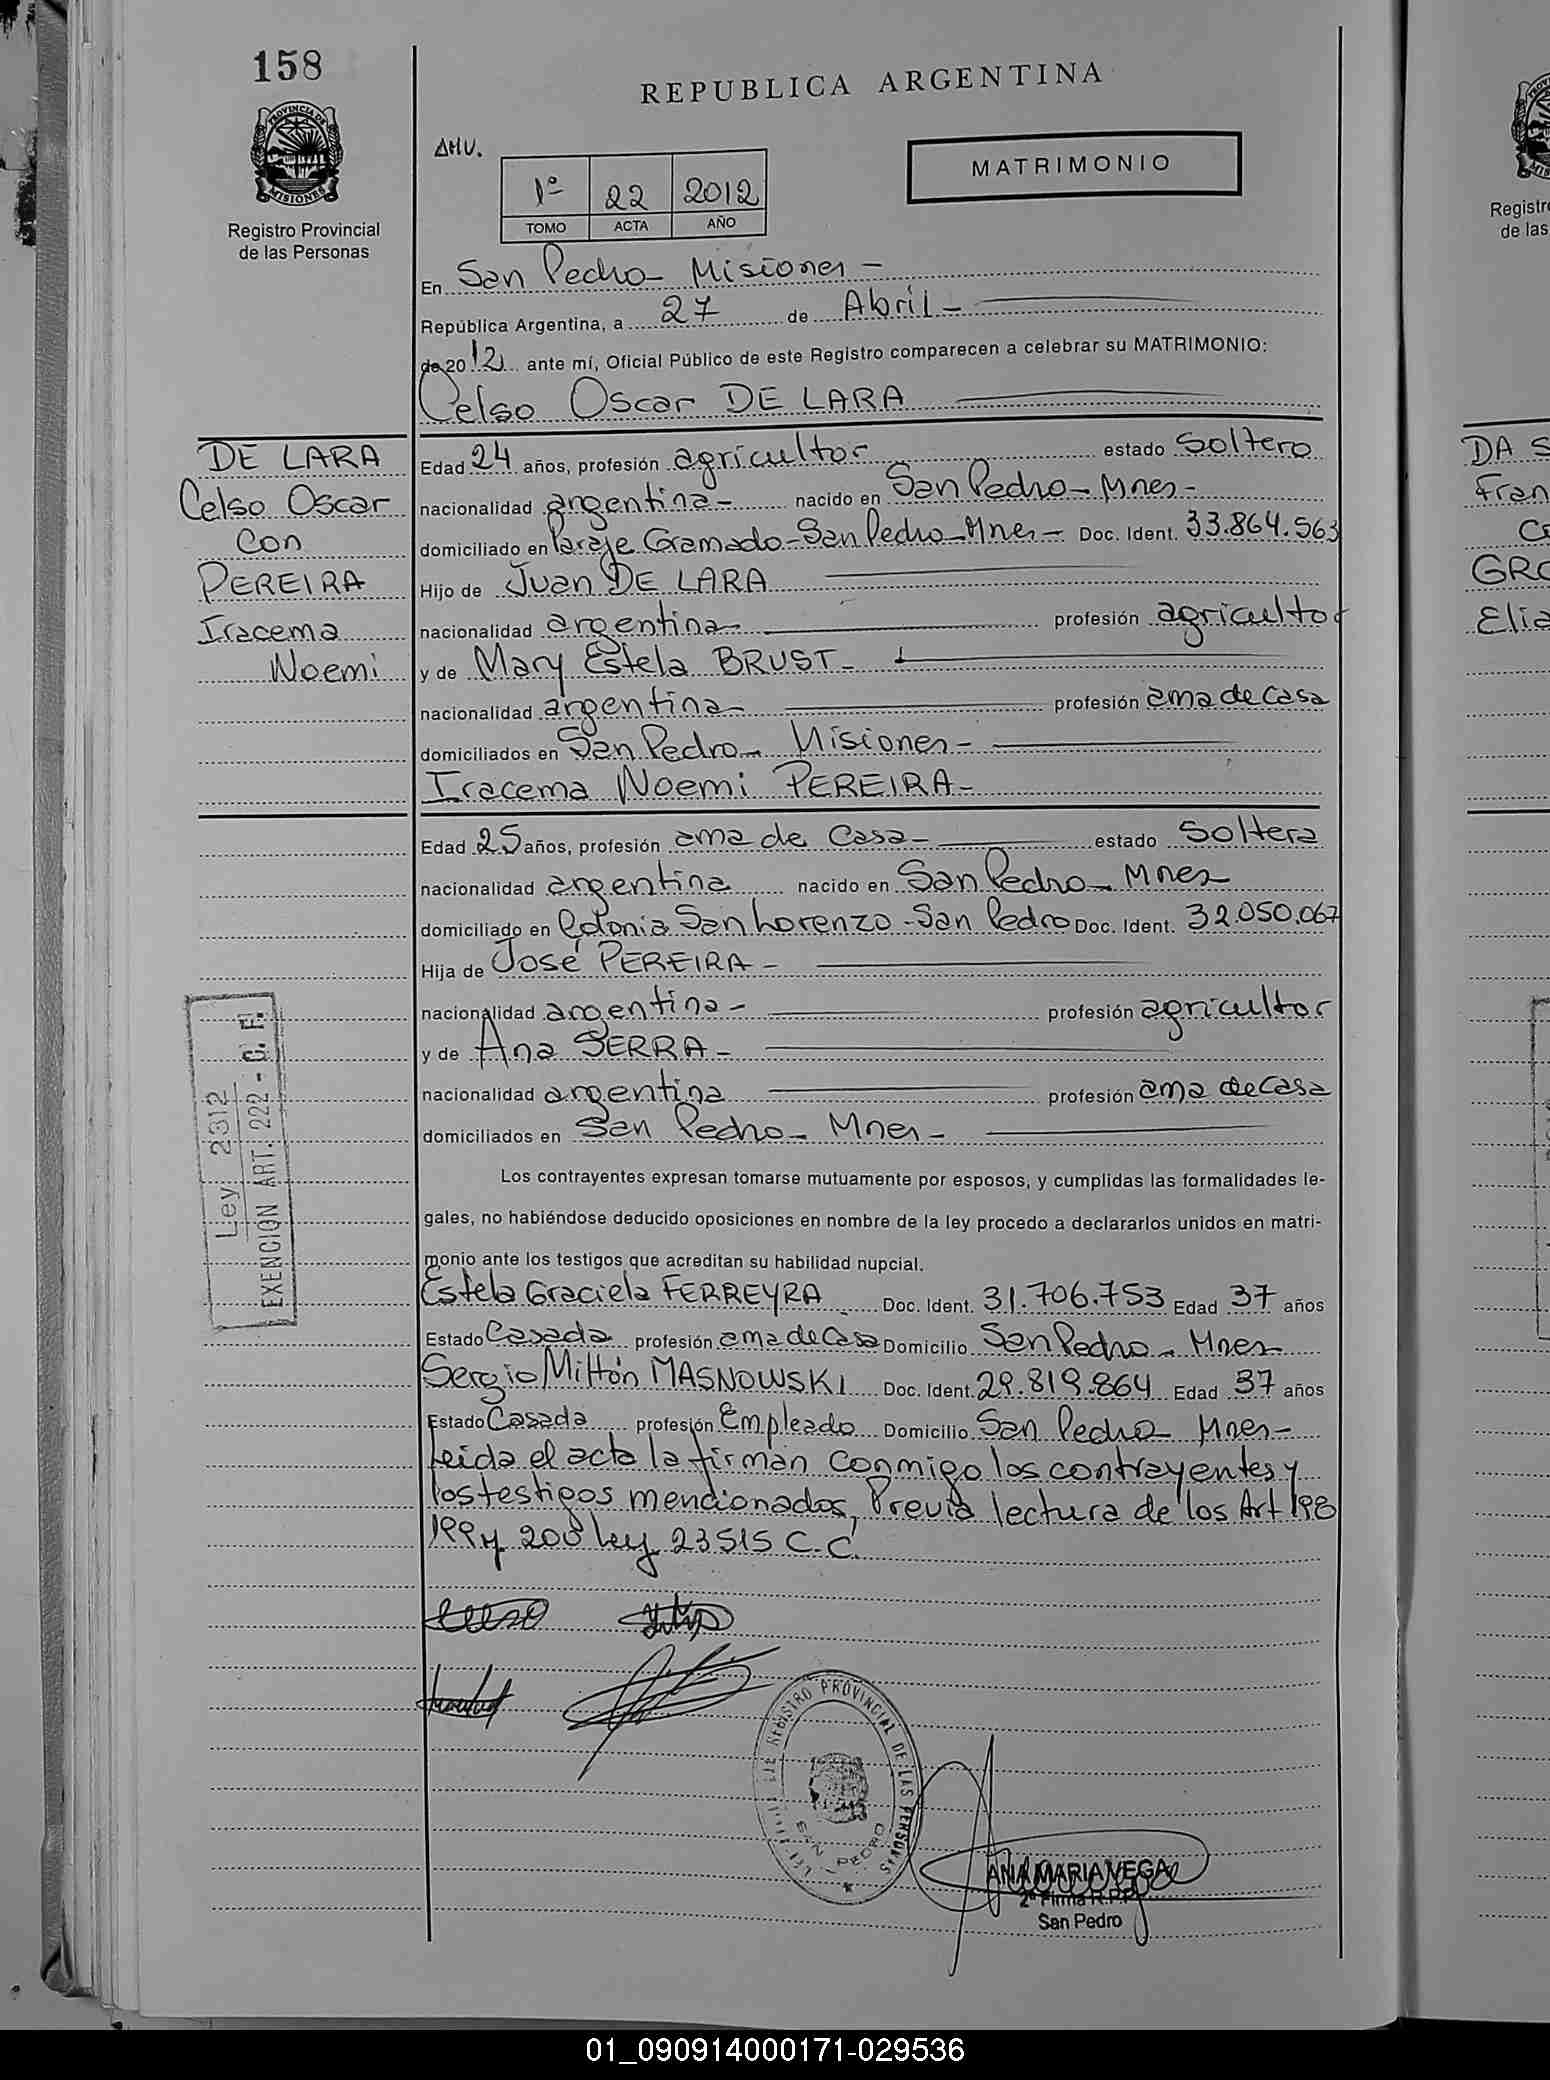 158
REPUBLICA ARGENTINA
PROVINCIA DE
MISIONES
Registro Provincial
de las Personas
AHU.
MATRIMONIO
1º 22 2012
TOMO ACTA AÑO
En San Pedro - Misiones -
República Argentina, a 27 de Abril -
de 2012 ante mí, Oficial Público de este Registro comparecen a celebrar su MATRIMONIO:
Celso Oscar DE LARA
DE LARA
Celso Oscar
Con
PEREIRA
Iracema
Noemi
Edad 24 años, profesión agricultor estado Soltero
nacionalidad argentina - nacido en San Pedro - Mnes -
domiciliado en Paraje Gramado - San Pedro - Mnes - Doc. Ident. 33.864.563
Hijo de Juan DE LARA
nacionalidad argentina - profesión agricultor
y de Mary Estela BRUST -
nacionalidad argentina - profesión ama de casa
domiciliados en San Pedro - Misiones -
Iracema Noemi PEREIRA -
Edad 25 años, profesión ama de casa - estado Soltera
nacionalidad argentina nacido en San Pedro - Mnes
domiciliado en Colonia San Lorenzo - San Pedro Doc. Ident. 32.050.067
Hija de José PEREIRA -
nacionalidad argentina - profesión agricultor
y de Ana SERRA -
nacionalidad argentina profesión ama de casa
domiciliados en San Pedro - Mnes -
Ley 2312
EXENCION ART. 222 - C. F.
Los contrayentes expresan tomarse mutuamente por esposos, y cumplidas las formalidades le-
gales, no habiéndose deducido oposiciones en nombre de la ley procedo a declararlos unidos en matri-
monio ante los testigos que acreditan su habilidad nupcial.
Estela Graciela FERREYRA Doc. Ident. 31.706.753 Edad 37 años
Estado Casada profesión ama de casa Domicilio San Pedro - Mnes
Sergio Miltón MASNOWSKI Doc. Ident. 29.819.864 Edad 37 años
Estado Casada profesión Empleado Domicilio San Pedro - Mnes -
Leida el acta la firman conmigo los contrayentes y
los testigos mencionados, Previa lectura de los Art 198
199 y 200 ley 23515 C.C
REGISTRO PROVINCIAL DE LAS PERSONAS
SAN PEDRO
ANA MARIA VEGA
2º Firma R.P.P.
San Pedro
Registr
de las
DA S
Fran
C
GRO
Elia
01_090914000171-029536